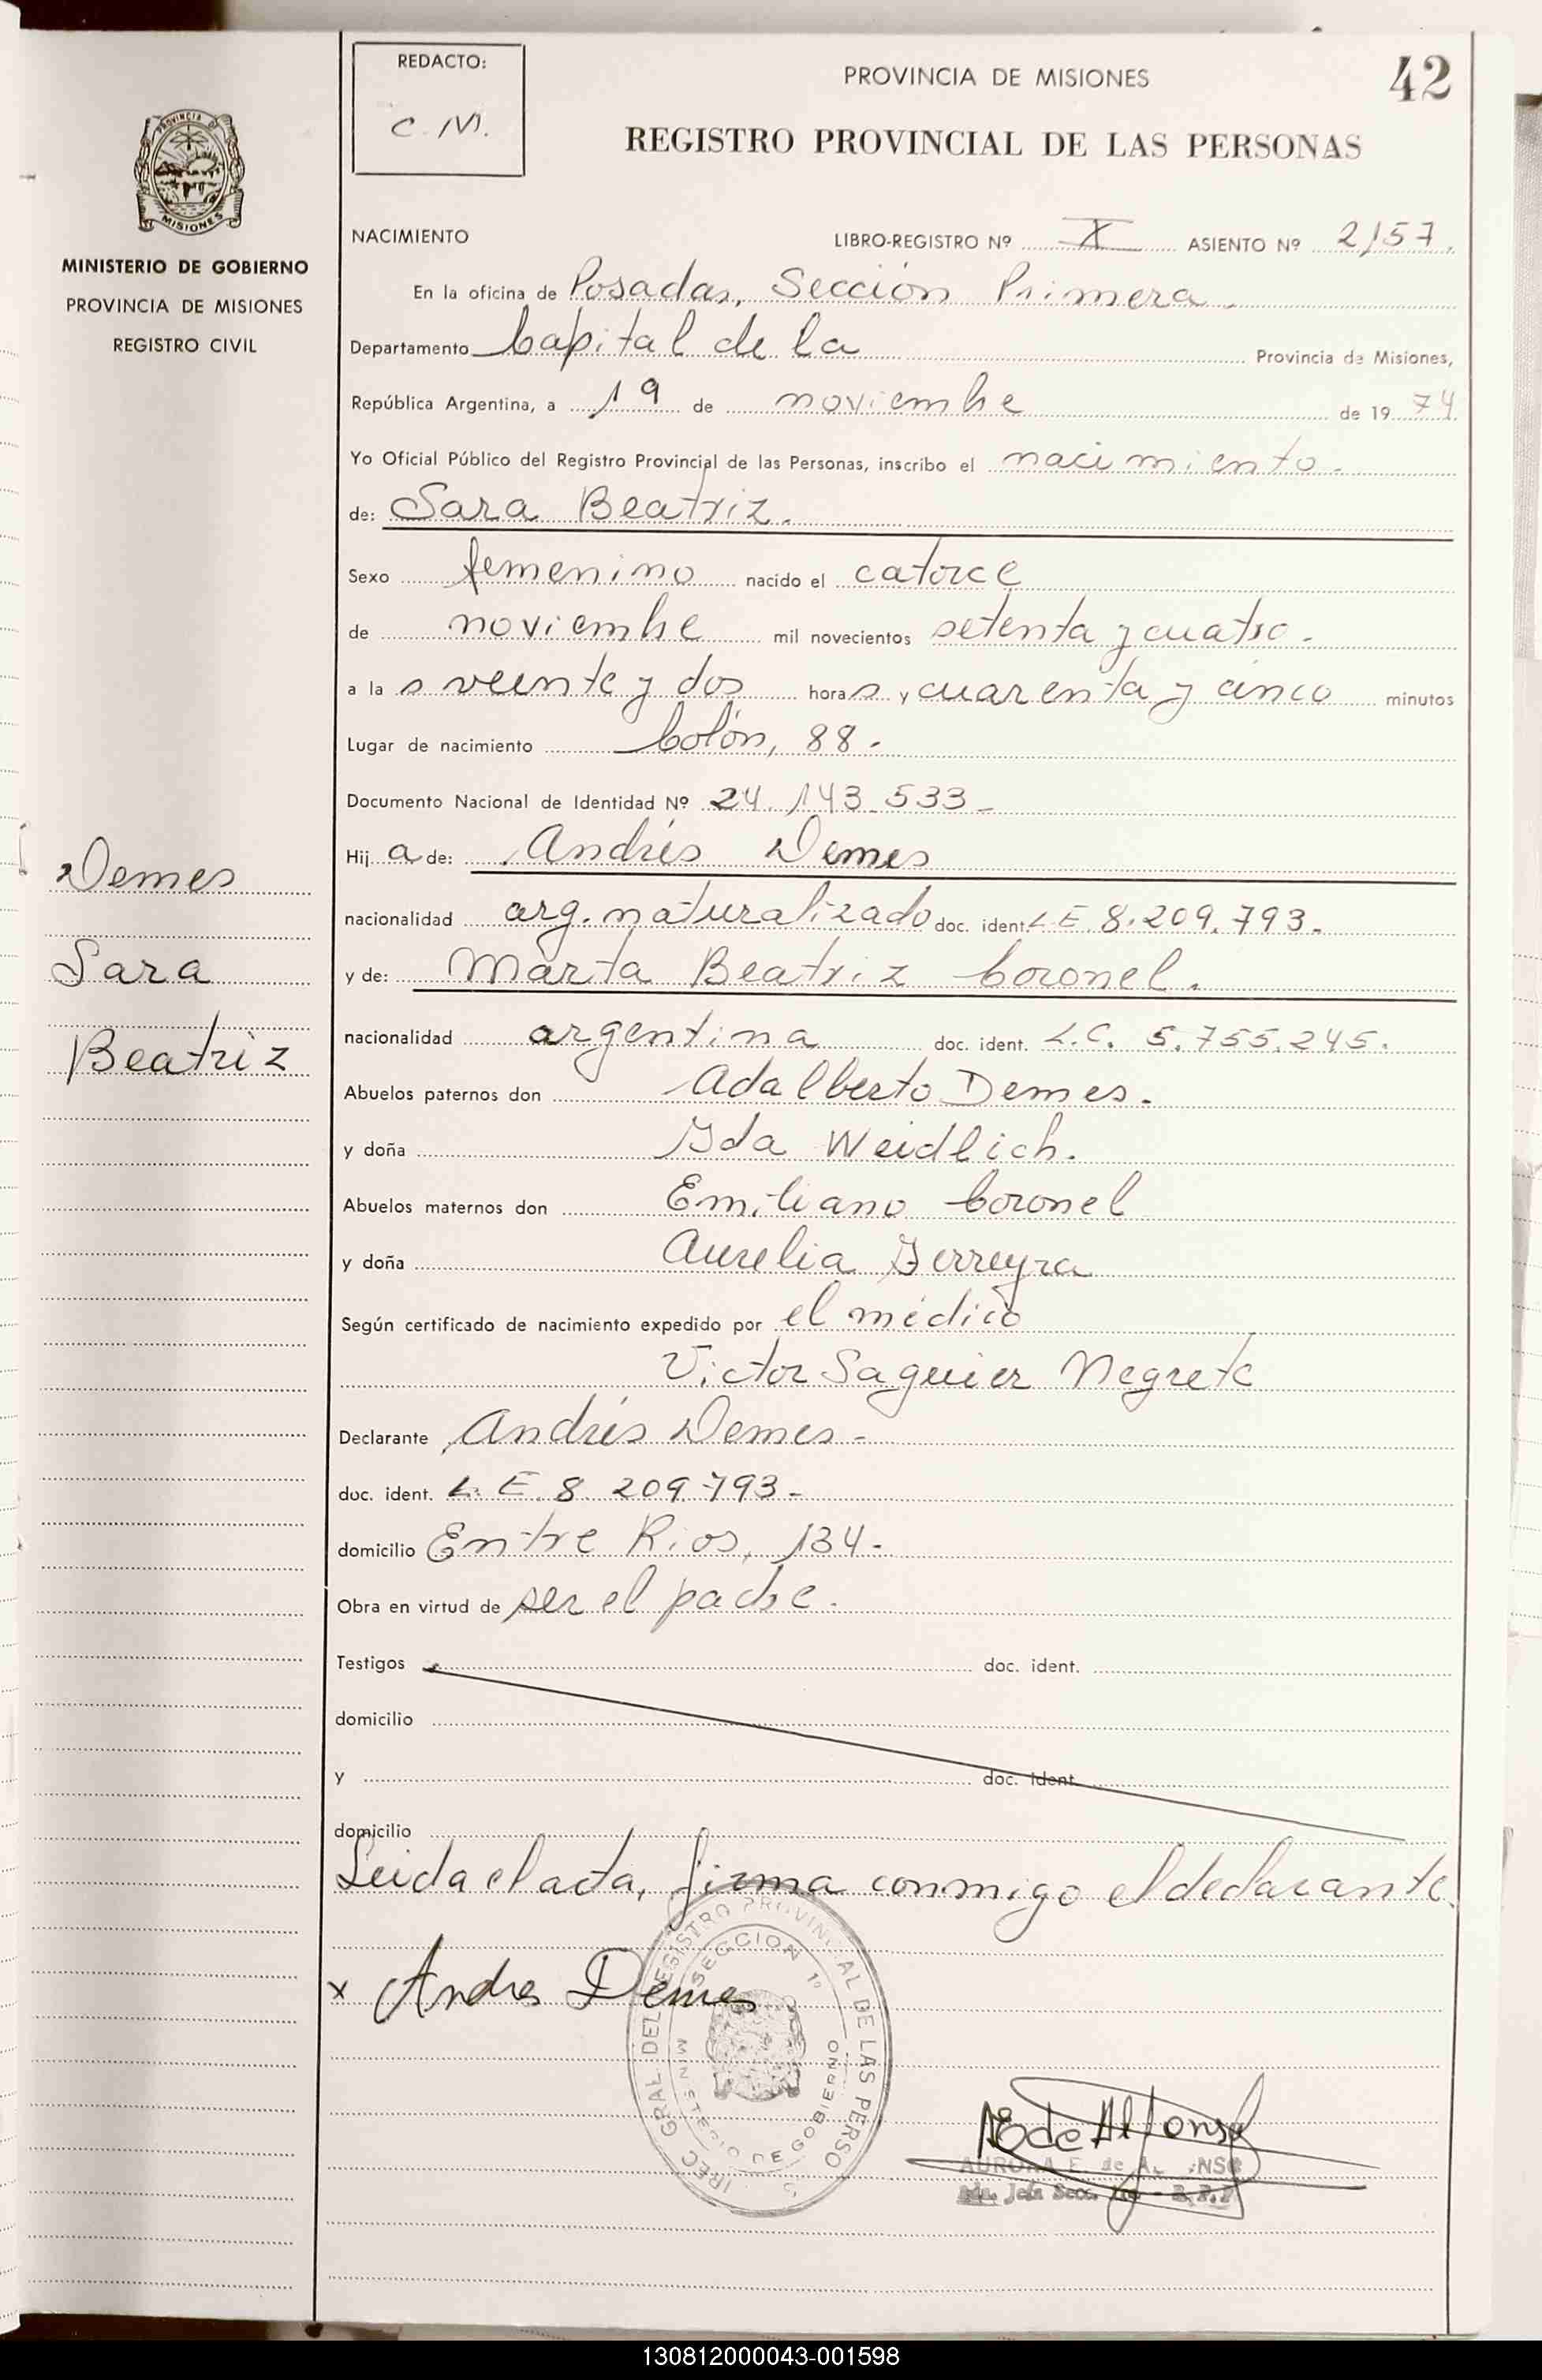 REDACTO:
C. M.
PROVINCIA DE MISIONES
42
REGISTRO PROVINCIAL DE LAS PERSONAS
PROVINCIA DE
MISIONES
MINISTERIO DE GOBIERNO
PROVINCIA DE MISIONES
REGISTRO CIVIL
NACIMIENTO LIBRO-REGISTRO Nº X ASIENTO Nº 2157.
En la oficina de Posadas, Sección Primera.
Departamento Capital de la Provincia de Misiones,
República Argentina, a 19 de noviembre de 1974
Yo Oficial Público del Registro Provincial de las Personas, inscribo el nacimiento.
de: Sara Beatriz.
Sexo femenino nacido el catorce
de noviembre mil novecientos setenta y cuatro.
a la s veinte y dos hora s y cuarenta y cinco minutos
Lugar de nacimiento Colón, 88.
Documento Nacional de Identidad Nº 24.143.533-
Hij a de: Andrés Demes
nacionalidad arg. naturalizado doc. ident. L.E. 8.209.793.
y de: Marta Beatriz Coronel.
nacionalidad argentina doc. ident. L.C. 5.755.245.
Abuelos paternos don Adalberto Demes.
y doña Ida Weidlich.
Abuelos maternos don Emiliano Coronel
y doña Aurelia Ferreyra
Según certificado de nacimiento expedido por el médico
Victor Saguier Negrete
Declarante Andrés Demes-
doc. ident. L. E. 8.209.793-
domicilio Entre Rios, 134-
Obra en virtud de ser el padre.
Testigos doc. ident.
domicilio
y doc. ident.
domicilio
Leida el acta, firma conmigo el declarante.
Demes
Sara
Beatriz
x Andres Demes
DIREC. GRAL. DEL REGISTRO PROVINCIAL DE LAS PERSONAS
SECCION 1º
MINISTERIO DE GOBIERNO
AE de Alfonso
AURORA E. de ALFONSO
Jefa Secc.
130812000043-001598